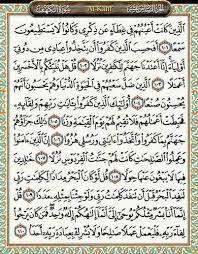 سُورَةُ الكَهْفِ
Al-Kahf
ٱلَّذِينَ كَانَتْ أَعْيُنُهُمْ فِى غِطَآءٍ عَن ذِكْرِى وَكَانُوا۟ لَا يَسْتَطِيعُونَ
سَمْعًا ١٠١ أَفَحَسِبَ ٱلَّذِينَ كَفَرُوٓا۟ أَن يَتَّخِذُوا۟ عِبَادِى مِن دُونِىٓ
أَوْلِيَآءَ إِنَّآ أَعْتَدْنَا جَهَنَّمَ لِلْكَٰفِرِينَ نُزُلًا ١٠٢ قُلْ هَلْ نُنَبِّئُكُم بِٱلْأَخْسَرِينَ
أَعْمَٰلًا ١٠٣ ٱلَّذِينَ ضَلَّ سَعْيُهُمْ فِى ٱلْحَيَوٰةِ ٱلدُّنْيَا وَهُمْ يَحْسَبُونَ أَنَّهُمْ
يُحْسِنُونَ صُنْعًا ١٠٤ أُو۟لَٰٓئِكَ ٱلَّذِينَ كَفَرُوا۟ بِـَٔايَٰتِ رَبِّهِمْ وَلِقَآئِهِۦ فَحَبِطَتْ
أَعْمَٰلُهُمْ فَلَا نُقِيمُ لَهُمْ يَوْمَ ٱلْقِيَٰمَةِ وَزْنًا ١٠٥ ذَٰلِكَ جَزَآؤُهُمْ
جَهَنَّمُ بِمَا كَفَرُوا۟ وَٱتَّخَذُوٓا۟ ءَايَٰتِى وَرُسُلِى هُزُوًا ١٠٦ إِنَّ ٱلَّذِينَ ءَامَنُوا۟
وَعَمِلُوا۟ ٱلصَّٰلِحَٰتِ كَانَتْ لَهُمْ جَنَّٰتُ ٱلْفِرْدَوْسِ نُزُلًا ١٠٧ خَٰلِدِينَ
فِيهَا لَا يَبْغُونَ عَنْهَا حِوَلًا ١٠٨ قُل لَّوْ كَانَ ٱلْبَحْرُ مِدَادًا لِّكَلِمَٰتِ رَبِّى
لَنَفِدَ ٱلْبَحْرُ قَبْلَ أَن تَنفَدَ كَلِمَٰتُ رَبِّى وَلَوْ جِئْنَا بِمِثْلِهِۦ مَدَدًا ١٠٩ قُلْ
إِنَّمَآ أَنَا۠ بَشَرٌ مِّثْلُكُمْ يُوحَىٰٓ إِلَىَّ أَنَّمَآ إِلَٰهُكُمْ إِلَٰهٌ وَٰحِدٌ فَمَن كَانَ يَرْجُوا۟
لِقَآءَ رَبِّهِۦ فَلْيَعْمَلْ عَمَلًا صَٰلِحًا وَلَا يُشْرِكْ بِعِبَادَةِ رَبِّهِۦٓ أَحَدًۢا ١١٠